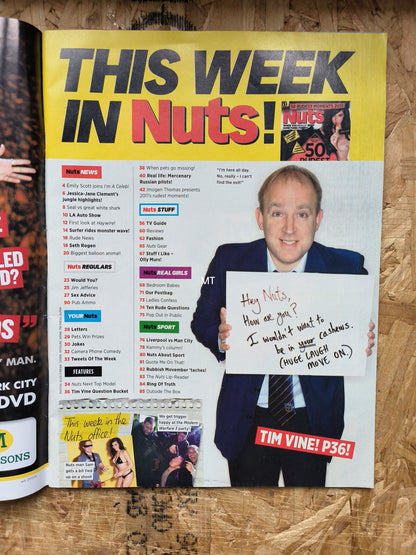 THIS WEEK
IN Nuts!
50 RUDEST MOMENTS 2011
Nuts
50
RUDEST
"I'm here all day.
No, really – I can't
find the exit!"
NutsNEWS
4 Emily Scott joins I'm A Celeb!
6 Jessica-Jane Clement's
jungle highlights!
8 Seal vs great white shark
10 LA Auto Show
12 First look at Haywire!
14 Surfer rides monster wave!
16 Rude News
18 Seth Rogen
20 Biggest balloon animal!
Nuts REGULARS
23 Would You?
25 Jim Jefferies
27 Sex Advice
90 Pub Ammo
YOURNuts
28 Letters
29 Pets Win Prizes
30 Jokes
32 Camera Phone Comedy
33 Tweets Of The Week
FEATURES
34 Nuts Next Top Model
36 Tim Vine Question Bucket
38 When pets go missing!
40 Real life: Mercenary
Russian pilots!
42 Imogen Thomas presents
2011's rudest moments!
Nuts STUFF
56 TV Guide
60 Reviews
62 Fashion
65 Nuts Gear
67 Stuff I Like –
Olly Murs!
Nuts REAL GIRLS
68 Bedroom Babes
71 Our Postbag
73 Ladies Confess
74 Ten Rude Questions
76 Pop Out In Public
NutsSPORT
78 Liverpool vs Man City
79 Kammy's column!
80 Nuts About Sport
81 Quote Me On That!
82 Rubbish November 'taches!
83 The Nuts Lip-Reader
84 Ring Of Truth
85 Outside The Box
MT
Hey Nuts,
How are you?
I wouldn't want to
be in your cashews.
(HUGE LAUGH
MOVE ON.)
TIM VINE! P36!
This week in the
Nuts office!
Nuts man Sam
gets a bit tied
up on a shoot
We get trigger
happy at the Modern
Warfare 3 party!
LED
D?
PS"
Y MAN.
RK CITY
DVD
M
SONS